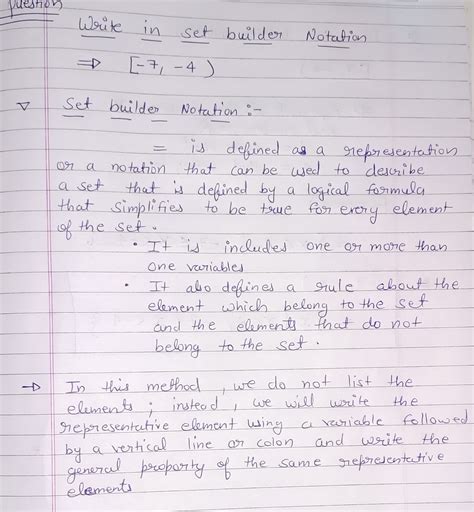 Question
Write in set builder Notation
⇒ [-7, -4)
▽ Set builder Notation :-
= is defined as a representation
or a notation that can be used to describe
a set that is defined by a logical formula
that simplifies to be true for every element
of the set.
• It is includes one or more than
one variables
• It also defines a rule about the
element which belong to the set
and the elements that do not
belong to the set.
→ In this method, we do not list the
elements; instead, we will write the
representative element using a variable followed
by a vertical line or colon and write the
general property of the same representative
elements